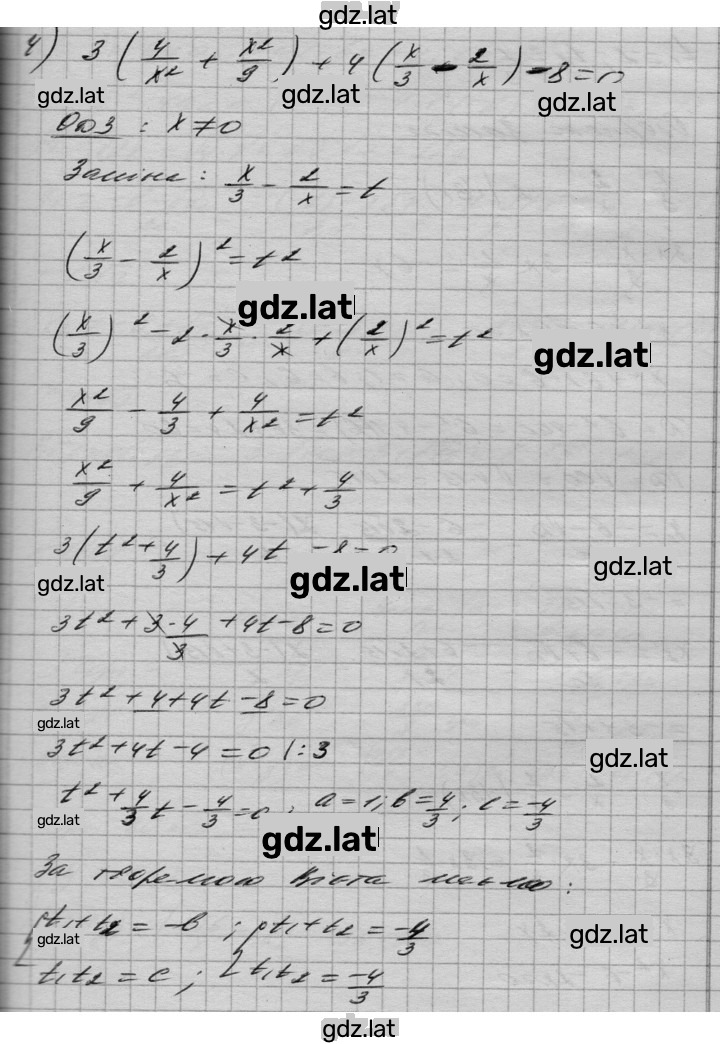 gdz.lat
4) 3(4/x² + x²/9) + 4(x/3 - 2/x) - 8 = 0
gdz.lat gdz.lat gdz.lat
ОДЗ : x ≠ 0
Заміна : x/3 - 2/x = t
(x/3 - 2/x)² = t²
gdz.lat
(x/3)² - 2 · x/3 · 2/x + (2/x)² = t²
gdz.lat
x²/9 - 4/3 + 4/x² = t²
x²/9 + 4/x² = t² + 4/3
3(t² + 4/3) + 4t - 8 = 0
gdz.lat gdz.lat gdz.lat
3t² + 3·4/3 + 4t - 8 = 0
3t² + 4 + 4t - 8 = 0
gdz.lat
3t² + 4t - 4 = 0 | : 3
gdz.lat
t² + 4/3 t - 4/3 = 0 ; a = 1; b = 4/3 ; c = -4/3
gdz.lat gdz.lat
За теоремою Вієта маємо :
{t₁ + t₂ = -b ; {t₁ + t₂ = -4/3
gdz.lat gdz.lat
t₁t₂ = c ; t₁t₂ = -4/3
gdz.lat